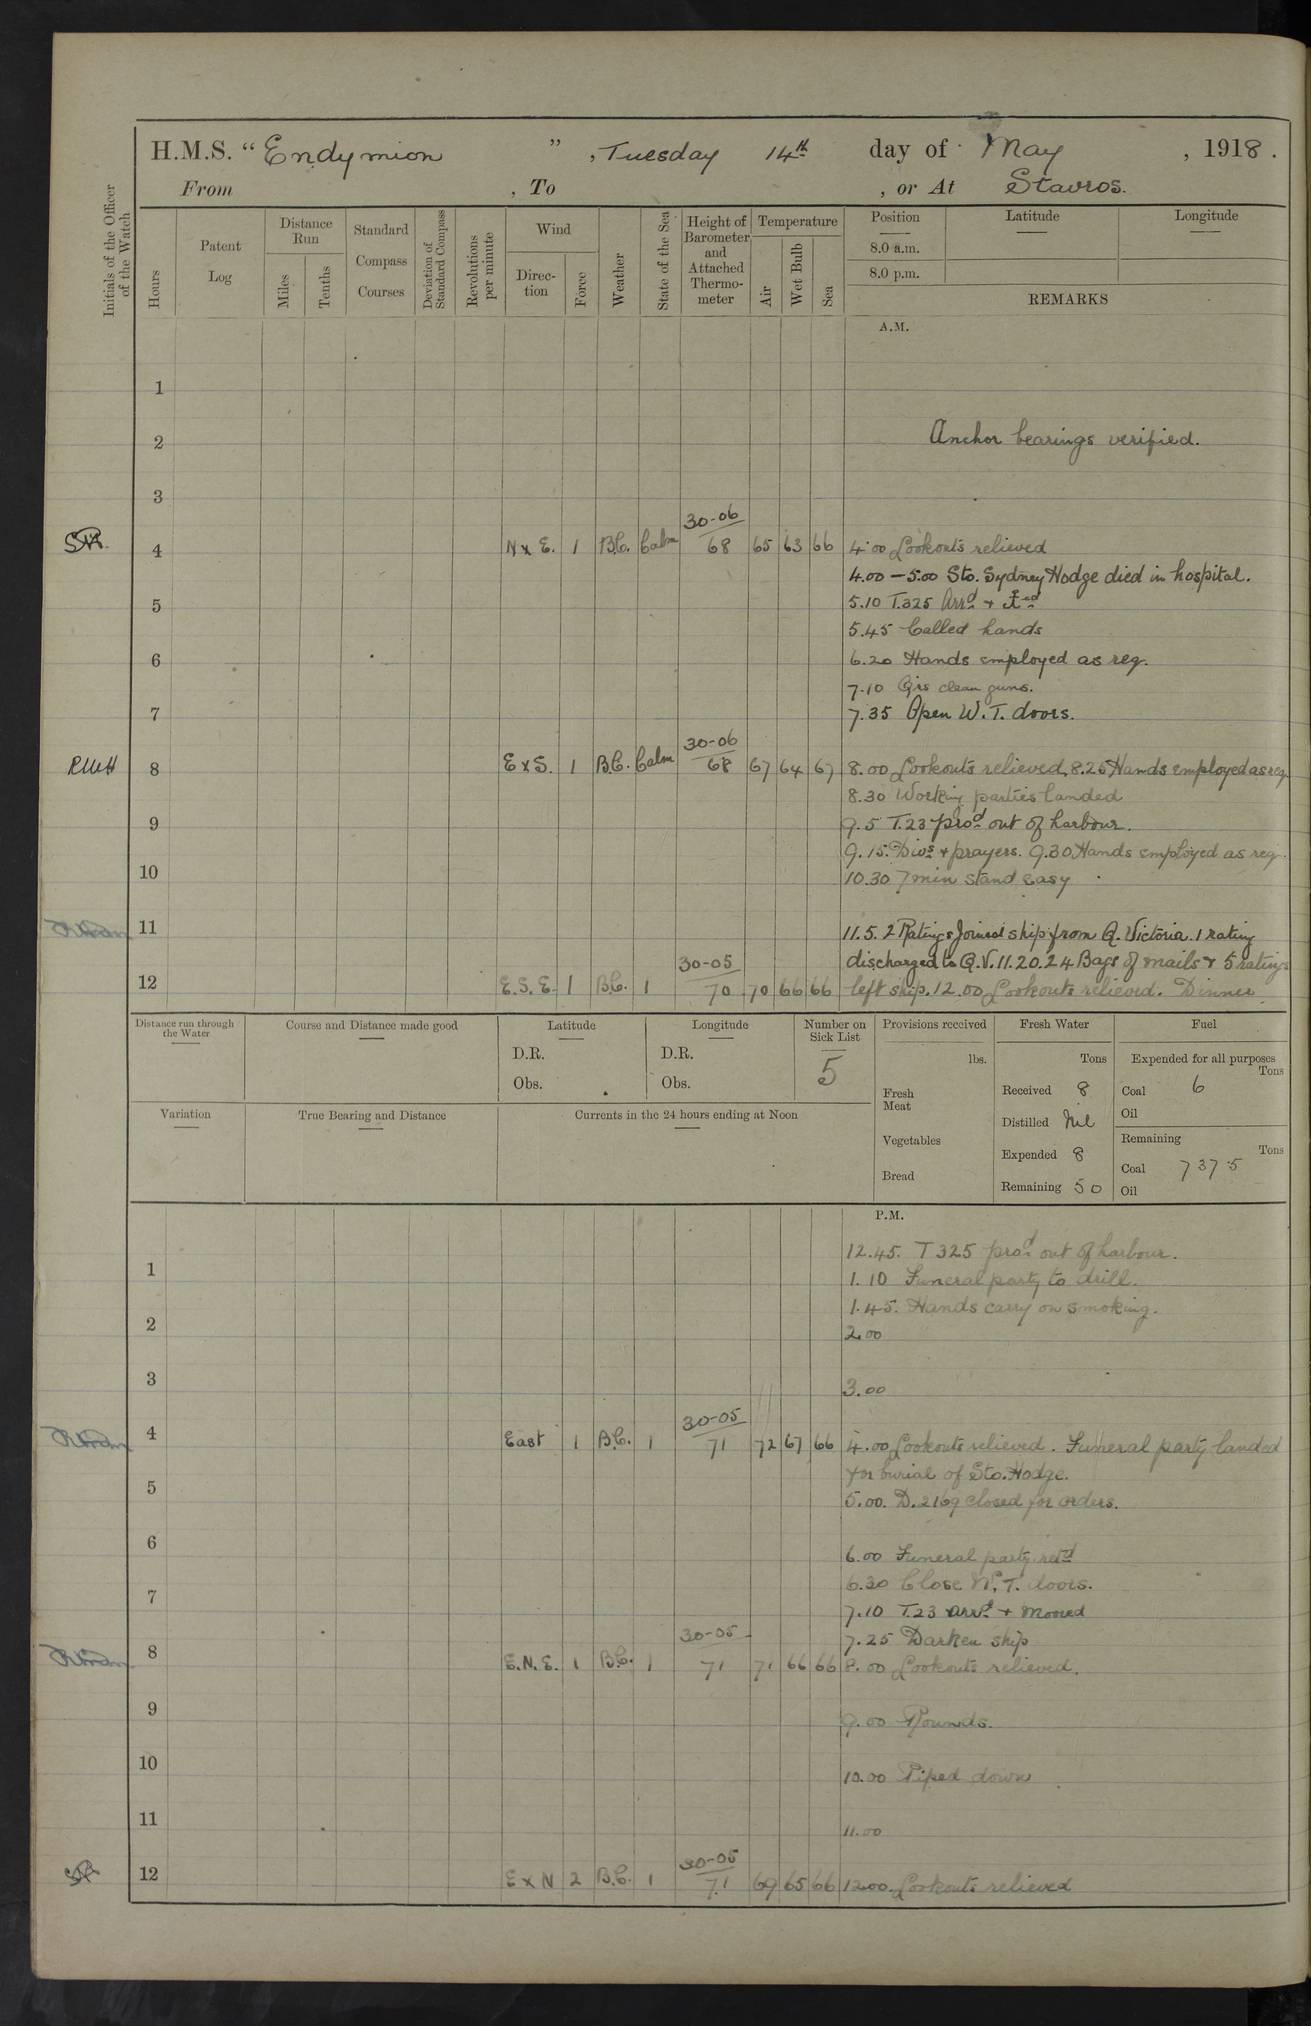 H.M.S. "Endymion", Tuesday 14th day of May, 1918.
From , To , or At Stavros.
Initials of the Officer of the Watch
Hours
Patent Log
Distance Run
Miles
Tenths
Standard Compass Courses
Deviation of Standard Compass
Revolutions per minute
Wind
Direction
Force
Weather
State of the Sea
Height of Barometer and Attached Thermometer
Temperature
Air
Wet Bulb
Sea
Position
8.0 a.m.
8.0 p.m.
Latitude
Longitude
REMARKS
A.M.
1
2 Anchor bearings verified.
3
30-06
4 N x E. 1 B.C. Calm 68 65 63 66 4.00 Lookouts relieved
4.00 - 5.00 Sto. Sydney Hodge died in hospital.
5 5.10 T.325 Arrd +
5.45 Called hands
6 6.20 Hands employed as req.
7.10 Qrs clean guns.
7 7.35 Open W.T. doors.
30-06
RWH 8 E x S. 1 B.C. Calm 68 67 64 67 8.00 Lookouts relieved, 8.25 Hands employed as req
8.30 Working parties landed
9 9.5 T.23 prod out of harbour.
9.15. Divs + prayers. 9.30 Hands employed as req.
10 10.30 7 min stand easy
11 11.5. 2 Ratings Joined ship from Q. Victoria. 1 rating
30-05 discharged to Q.V. 11.20. 24 Bags of mails + 5 ratings
12 E.S.E. 1 B.C. 1 70 70 66 66 left ship. 12.00 Lookouts relieved. Dinner.
Distance run through the Water
Course and Distance made good
Latitude
D.R.
Obs.
Longitude
D.R.
Obs.
Number on Sick List
5
Provisions received
lbs.
Fresh Meat
Vegetables
Bread
Fresh Water
Tons
Received 8
Distilled Nil
Expended 8
Remaining 50
Fuel
Expended for all purposes
Tons
Coal 6
Oil
Remaining
Tons
Coal 737.5
Oil
Variation
True Bearing and Distance
Currents in the 24 hours ending at Noon
P.M.
12.45. T 325 prod out of harbour.
1 1.10 Funeral party to drill.
1.45. Hands carry on smoking.
2 2.00
3 3.00
30-05
4 East 1 B.C. 1 71 72 67 66 4.00 Lookouts relieved. Funeral party landed
for burial of Sto. Hodge.
5 5.00. D.2169 closed for orders.
6 6.00 Funeral party retd
6.30 Close W.T. doors.
7 7.10 T.23 arrd + moored
30-05 7.25 Darken ship
8 E.N.E. 1 B.C. 1 71 71 66 66 8.00 Lookouts relieved.
9 9.00 Rounds.
10 10.00 Piped down
11 11.00
30-05
12 E x N 2 B.C. 1 71 69 65 66 12.00. Lookouts relieved